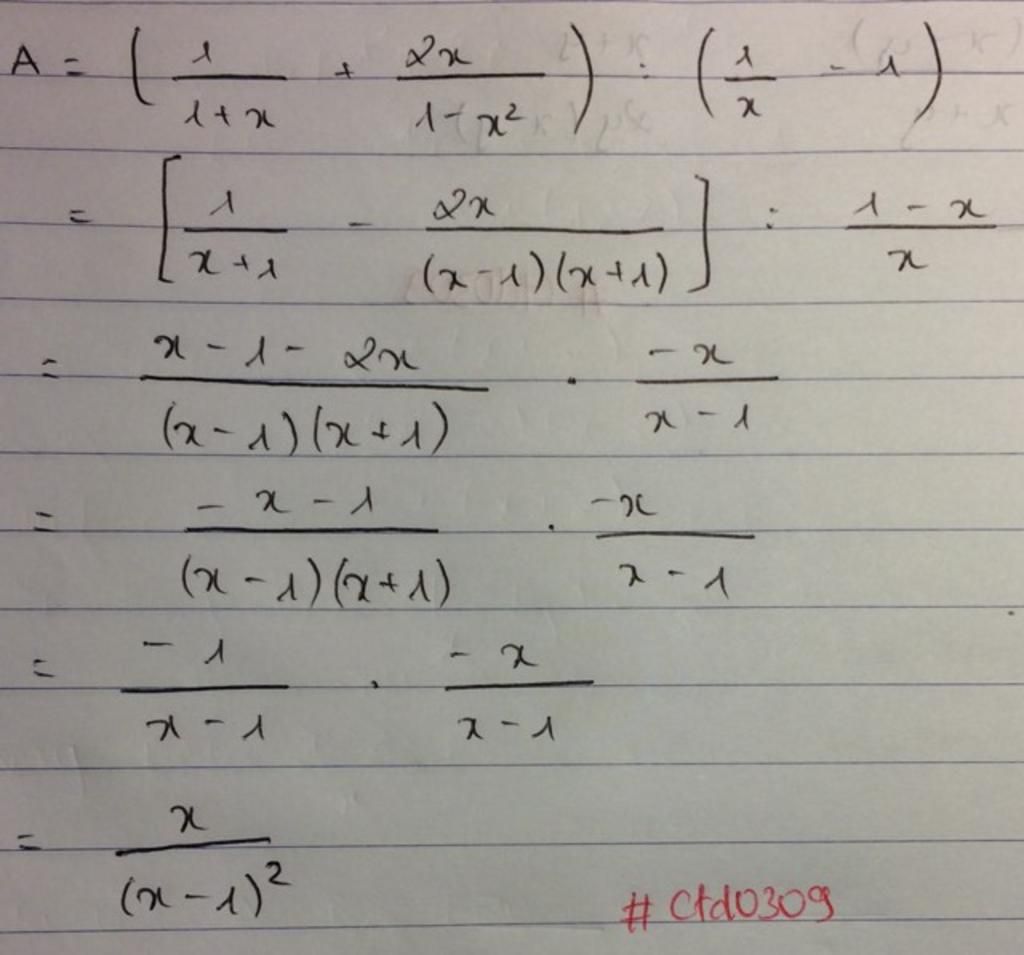 A = ( 1/(1+x) + 2x/(1-x²) ) : ( 1/x - 1 )
= [ 1/(x+1) - 2x/((x-1)(x+1)) ] : (1-x)/x
= (x-1-2x)/((x-1)(x+1)) . (-x)/(x-1)
= (-x-1)/((x-1)(x+1)) . (-x)/(x-1)
= (-1)/(x-1) . (-x)/(x-1)
= x/(x-1)²
# Ctd0309